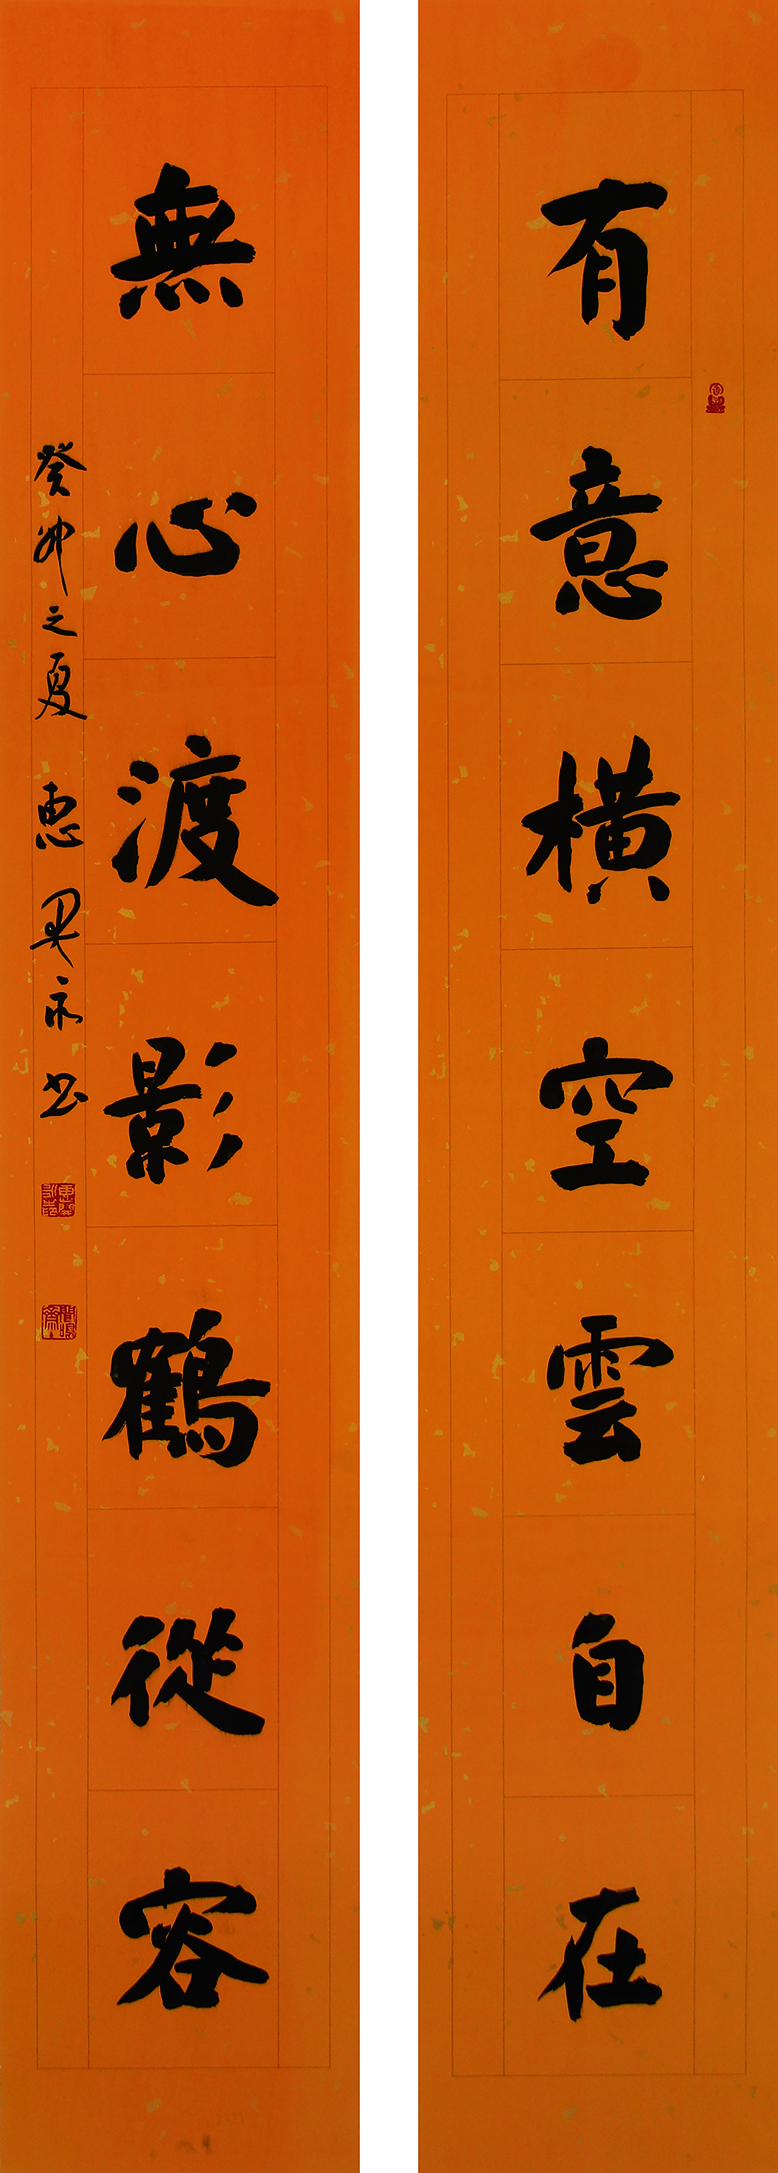 有意橫空雲自在
無心渡影鶴從容
癸卯之夏 惠 永书